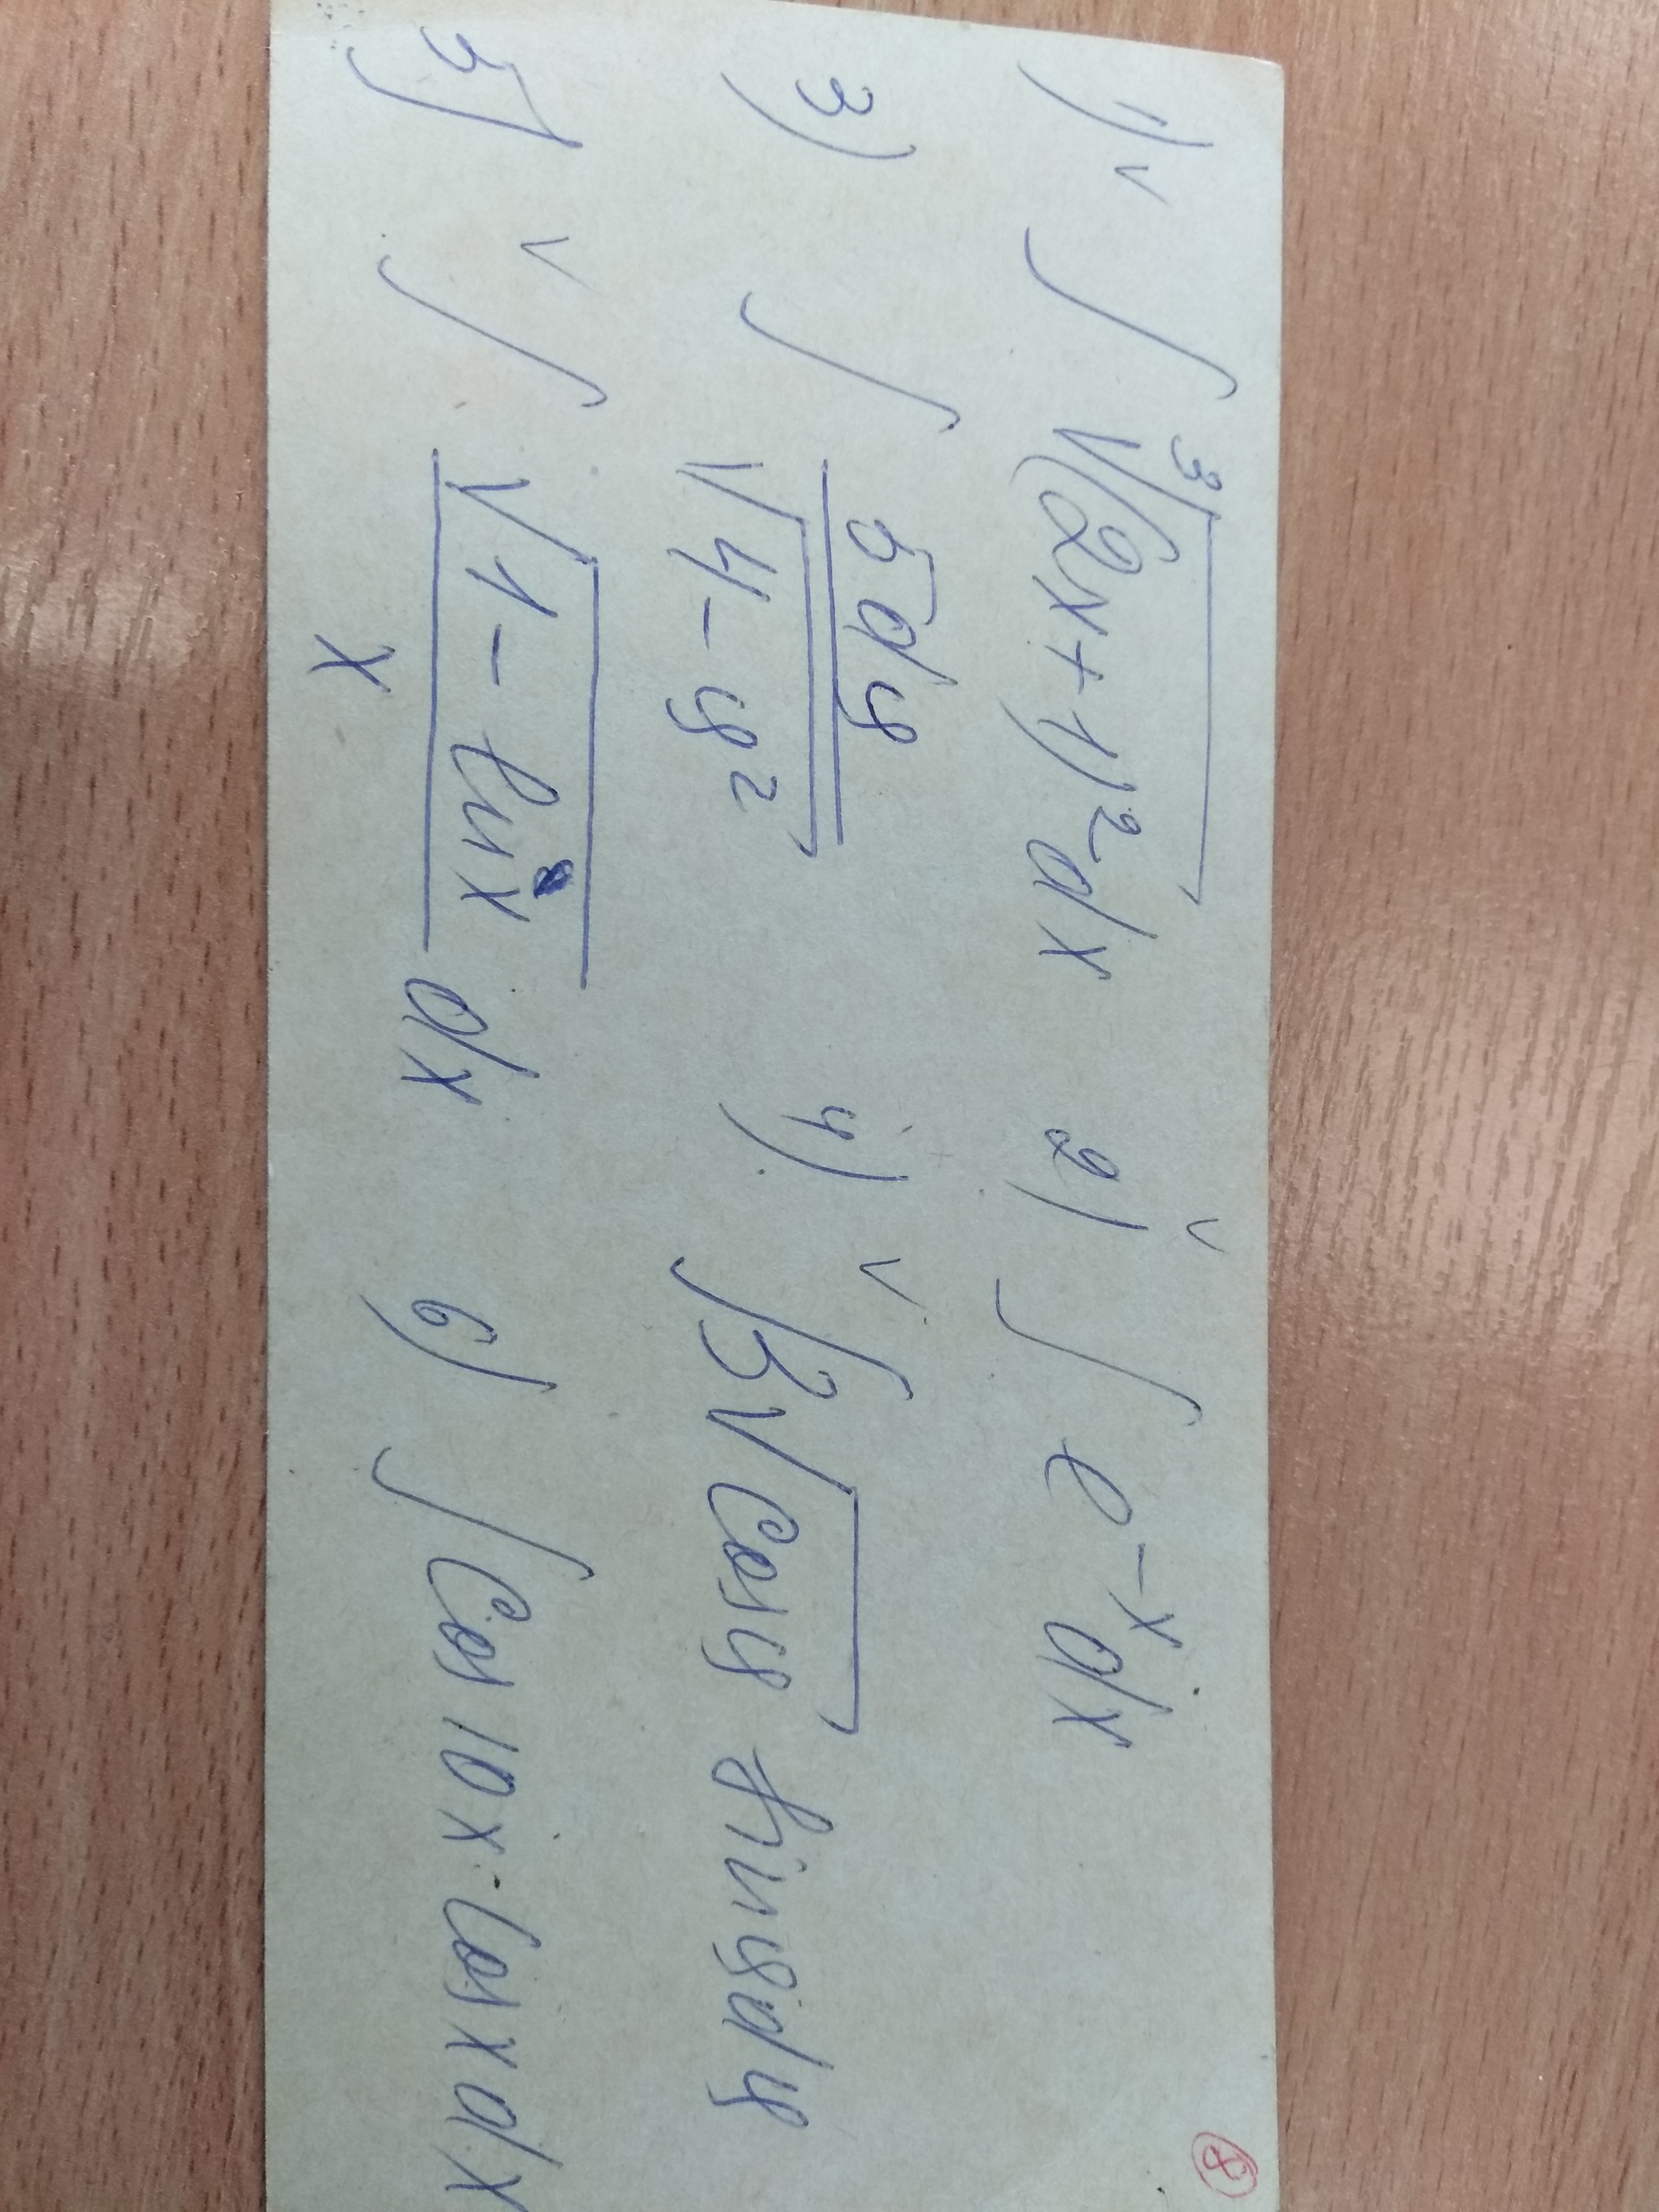 8
1) ∫ ∛(2x+1)² dx 2) ∫ e⁻ˣ dx
3) ∫ 5dy / √(4-y²) 4) ∫ 3√cos y sin y dy
5) ∫ √(1-ln x) / x dx 6) ∫ cos 10x · cos x dx